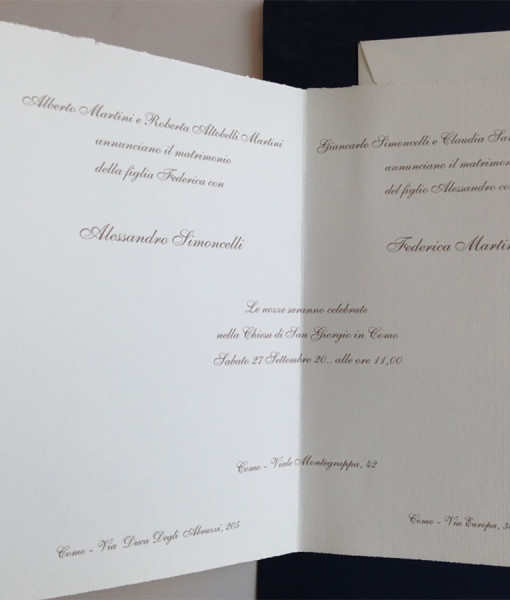 Alberto Martini e Roberta Altobelli Martini
annunciano il matrimonio
della figlia Federica con
Alessandro Simoncelli
Giancarlo Simoncelli e Claudia
annunciano il matrimonio
del figlio Alessandro
Federica
Le nozze saranno celebrate
nella Chiesa di San Giorgio in Como
Sabato 27 Settembre 20.. alle ore 11,00
Como - Viale Montegrappa, 42
Como - Via Duca Degli Abruzzi, 205
Como - Via Europa,